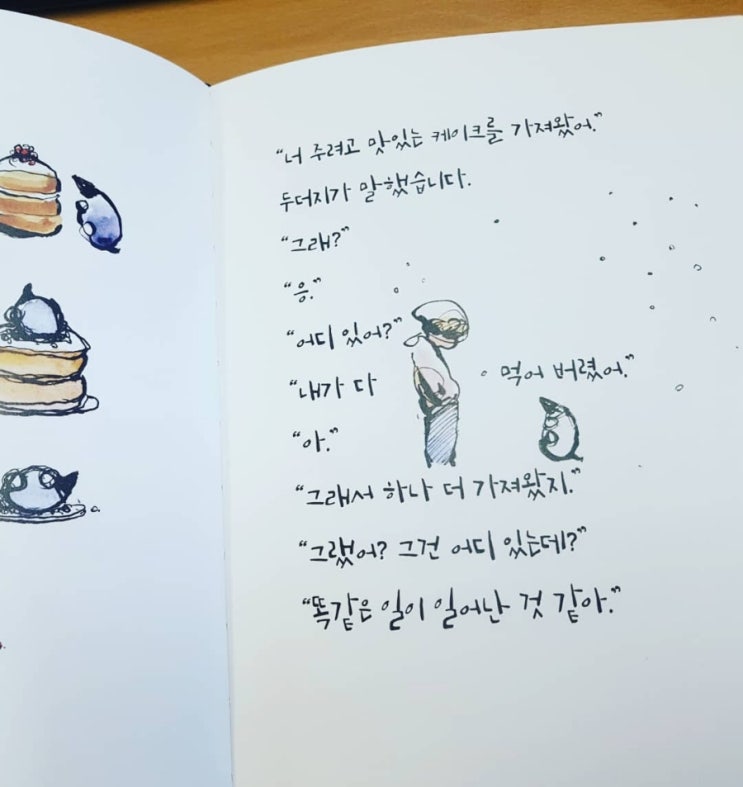 “너 주려고 맛있는 케이크를 가져왔어.”
두더지가 말했습니다.
“그래?”
“응.”
“어디 있어?”
“내가 다 먹어 버렸어.”
“아.”
“그래서 하나 더 가져왔지.”
“그랬어? 그건 어디 있는데?”
“똑같은 일이 일어난 것 같아.”